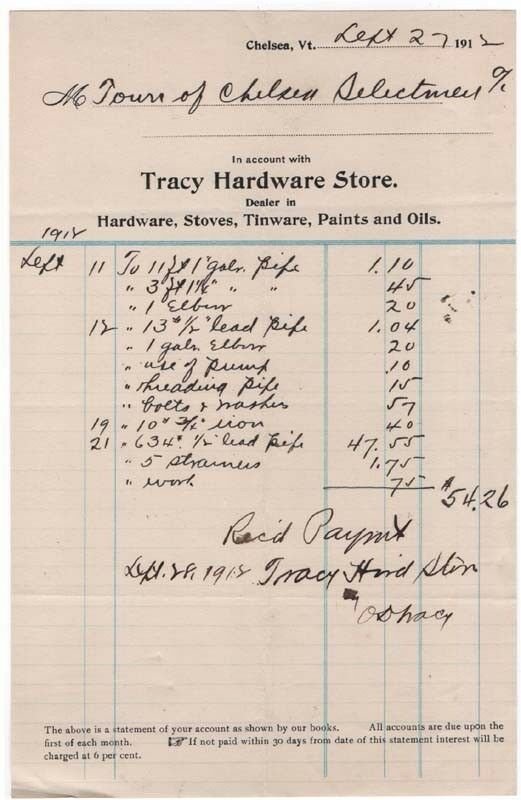 Chelsea, Vt. Sept 27 1912
M Town of Chelsea Selectmen %
In account with
Tracy Hardware Store.
Dealer in
Hardware, Stoves, Tinware, Paints and Oils.
1912
Sept 11 To 11 ft 1" galv. pipe 1.10
" 3 ft 1¼" " " 45
" 1 Elbow 20
12 " 13# ½" lead pipe 1.04
" 1 galv. Elbow 20
" use of pump .10
" threading pipe 15
" bolts & washers 57
19 " 10# ¾" iron 40
21 " 634# ½" lead pipe 47.55
" 5 strainers 1.75
" work 75 $54.26
Rec'd Paymt
Sept. 28, 1912 Tracy Hwd Store
Tracy
The above is a statement of your account as shown by our books. All accounts are due upon the
first of each month. ☞ If not paid within 30 days from date of this statement interest will be
charged at 6 per cent.